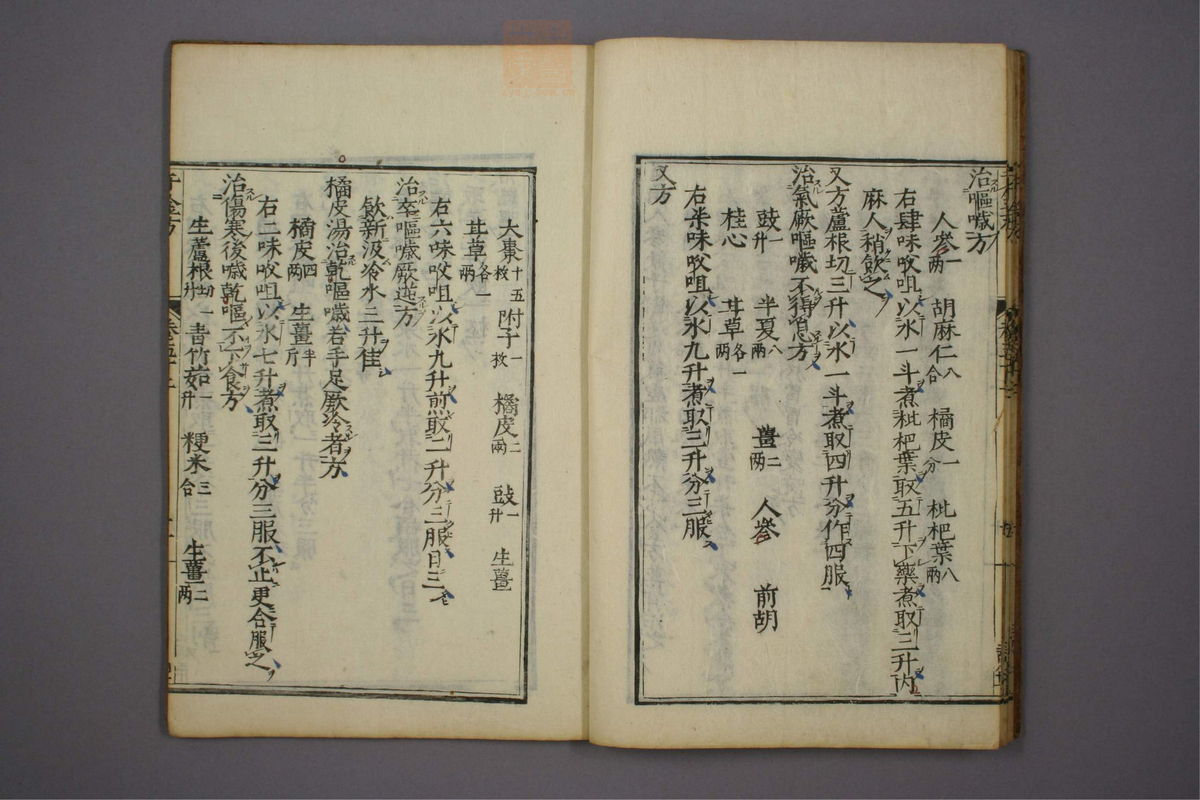 治嘔噦方
人參一兩 胡麻仁八合 橘皮一分 枇杷葉八兩
右肆味㕮咀以水一斗煮枇杷葉取五升下藥煮取三升內
麻人稍飲之
又方蘆根切三升以水一斗煮取四升分作四服
治氣厥嘔噦不得息方
豉一升 半夏八兩 薑二兩 人參 前胡
桂心 甘草各一兩
右柒味㕮咀以水九升煮取三升分三服
又方
大棗十五枚 附子一枚 橘皮二兩 豉一升 生薑
甘草各一兩
右六味㕮咀以水九升煎取二升分三服日三
治卒嘔噦厥逆方
飲新汲冷水三升佳
橘皮湯治乾嘔噦若手足厥冷者方
橘皮四兩 生薑半斤
右二味㕮咀以水七升煮取三升分三服不止更合服之
治傷寒後噦乾嘔不下食方
生蘆根切一升 青竹茹一升 粳米三合 生薑二兩
千金方